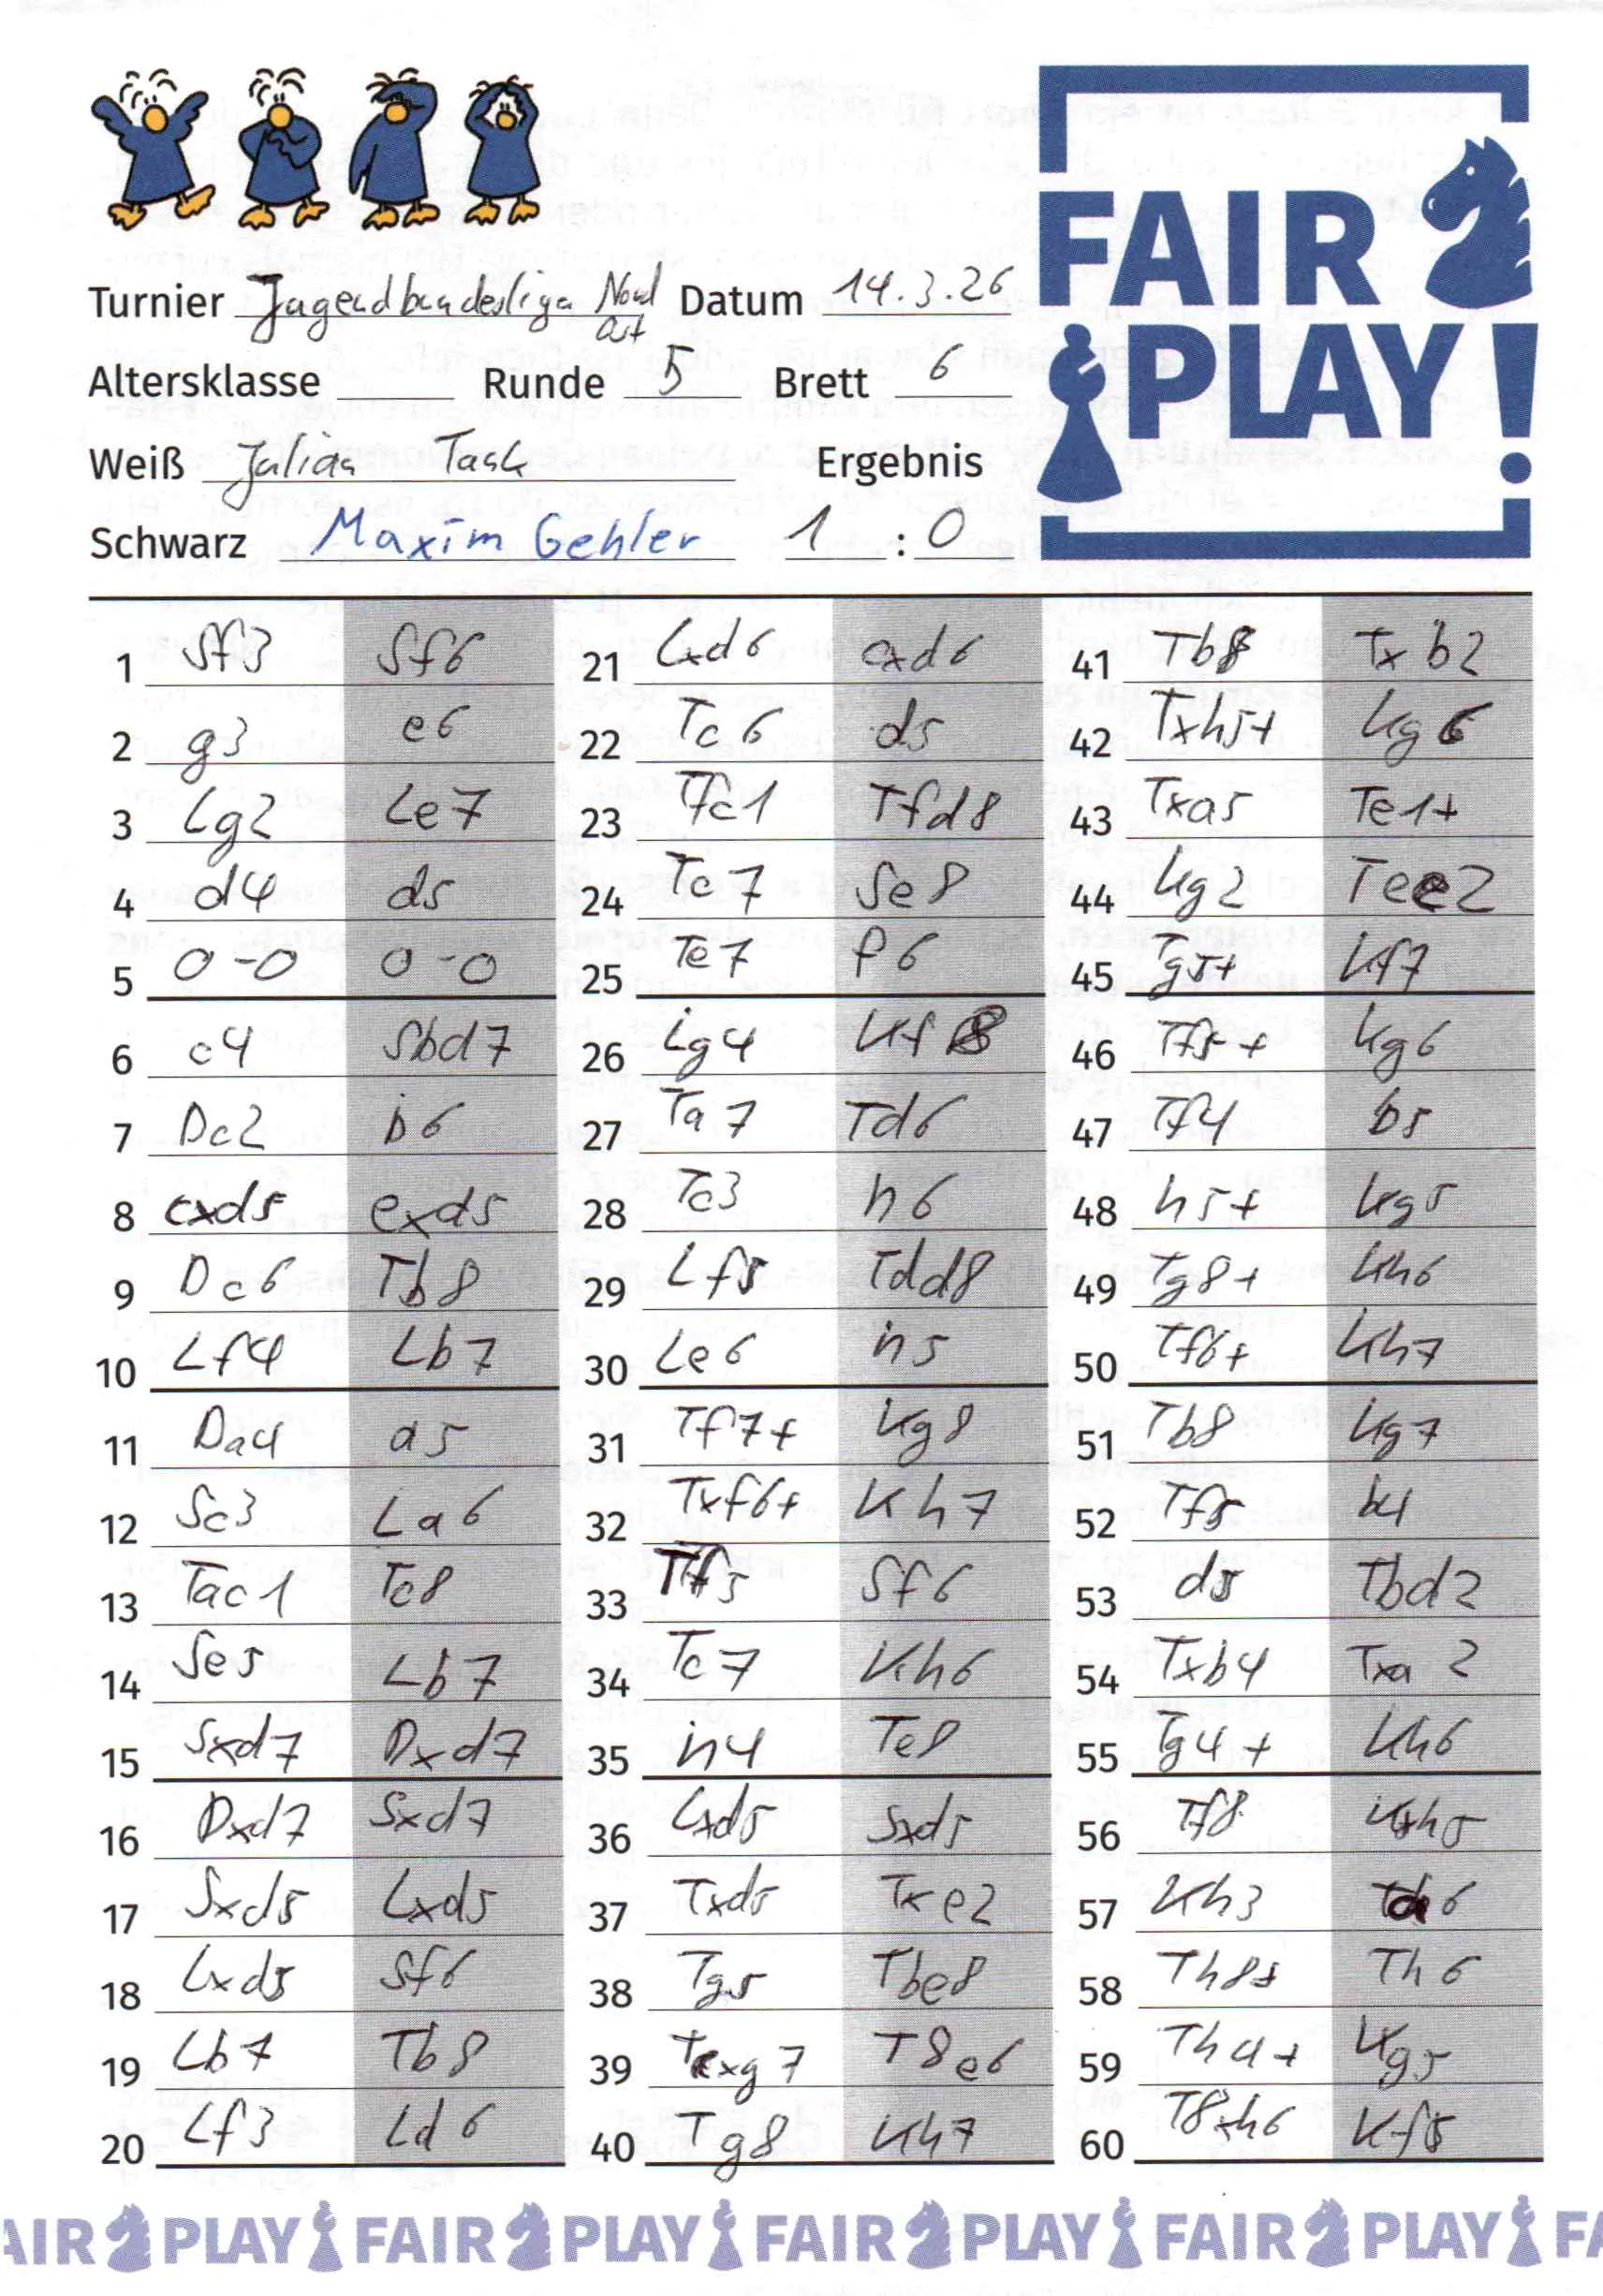 FAIR
PLAY!
Turnier Jugendbundesliga Nord Ost Datum 14.3.26
Altersklasse Runde 5 Brett 6
Weiß Julian Task Ergebnis
Schwarz Maxim Gehler 1 : 0
1 Sf3 Sf6
2 g3 e6
3 Lg2 Le7
4 d4 d5
5 0-0 0-0
6 c4 Sbd7
7 Dc2 b6
8 cxd5 exd5
9 Dc6 Tb8
10 Lf4 Lb7
11 Da4 a5
12 Sc3 La6
13 Tac1 Tc8
14 Se5 Lb7
15 Sxd7 Dxd7
16 Dxd7 Sxd7
17 Sxd5 Lxd5
18 Lxd5 Sf6
19 Lb7 Tb8
20 Lf3 Ld6
21 Lxd6 cxd6
22 Tc6 d5
23 Tfc1 Tfd8
24 Tc7 Se8
25 Te7 f6
26 Lg4 Kf8
27 Ta7 Td6
28 Tc3 h6
29 Lf5 Tdd8
30 Le6 h5
31 Tf7+ Kg8
32 Txf6+ Kh7
33 Tf5 Sf6
34 Tc7 Kh6
35 h4 Te8
36 Lxd5 Sxd5
37 Txd5 Txe2
38 Tg5 Tbe8
39 Tcxg7 T8e6
40 Tg8 Kh7
41 Tb8 Txb2
42 Txh5+ Kg6
43 Txa5 Te1+
44 Kg2 Tee2
45 Tg5+ Kf7
46 Tf5+ Kg6
47 Tf4 b5
48 h5+ Kg5
49 Tg8+ Kh6
50 Tf6+ Kh7
51 Tb8 Kg7
52 Tf5 b4
53 d5 Tbd2
54 Txb4 Txa2
55 Tg4+ Kh6
56 Tf8 Kxh5
57 Kh3 Ta6
58 Th8+ Th6
59 Th4+ Kg5
60 T8xh6 Kf5
AIR PLAY FAIR PLAY FAIR PLAY FAIR PLAY FA